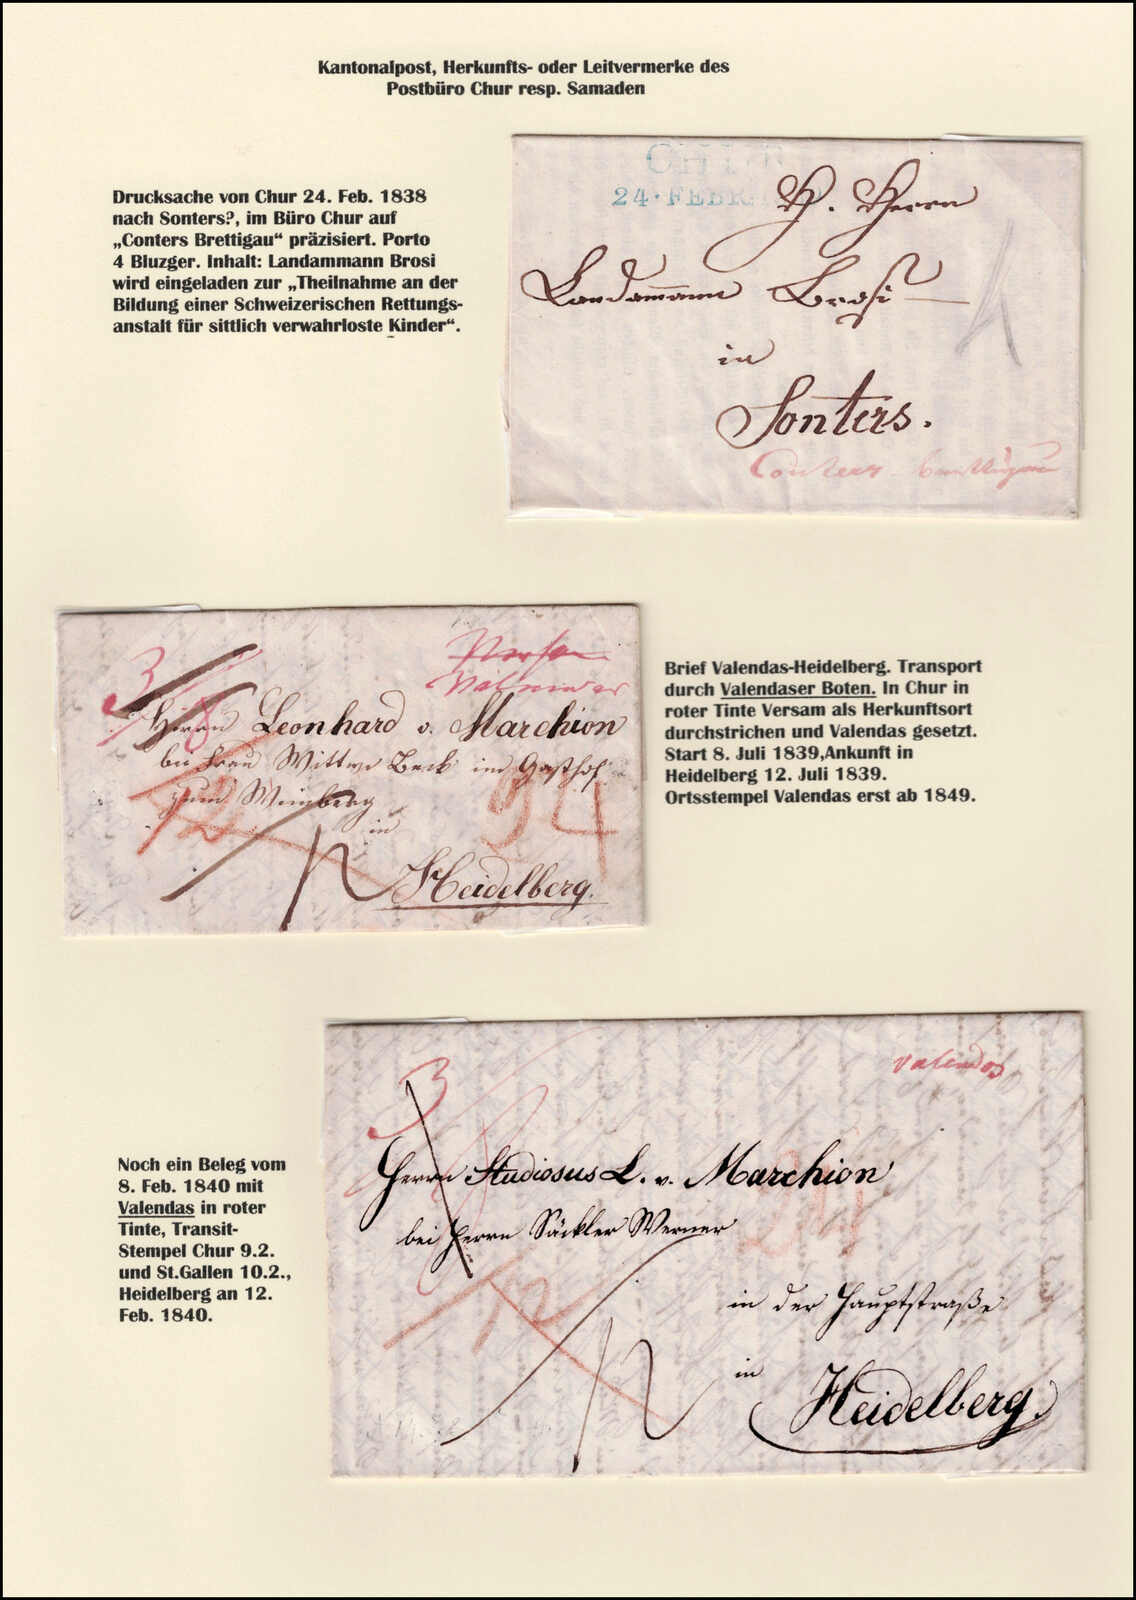 Kantonalpost, Herkunfts- oder Leitvermerke des
Postbüro Chur resp. Samaden
Drucksache von Chur 24. Feb. 1838
nach Sonters?, im Büro Chur auf
„Conters Brettigau“ präzisiert. Porto
4 Bluzger. Inhalt: Landammann Brosi
wird eingeladen zur „Theilnahme an der
Bildung einer Schweizerischen Rettungs-
anstalt für sittlich verwahrloste Kinder“.
CHUR
24·FEBR
H. Herrn
Landammann Brosi
in
Sonters.
Conters
Brief Valendas-Heidelberg. Transport
durch Valendaser Boten. In Chur in
roter Tinte Versam als Herkunftsort
durchstrichen und Valendas gesetzt.
Start 8. Juli 1839,Ankunft in
Heidelberg 12. Juli 1839.
Ortsstempel Valendas erst ab 1849.
3
Versam
Herrn Leonhard v. Marchion
bei Frau Wittwe Beck im Gasthof
zum Weinberg
24
12
in
Heidelberg.
Noch ein Beleg vom
8. Feb. 1840 mit
Valendas in roter
Tinte, Transit-
Stempel Chur 9.2.
und St.Gallen 10.2.,
Heidelberg an 12.
Feb. 1840.
Valendas
3
Herrn Studiosus L. v. Marchion
bei Herrn Säckler Werner
24
12
in der Hauptstraße
in
Heidelberg.